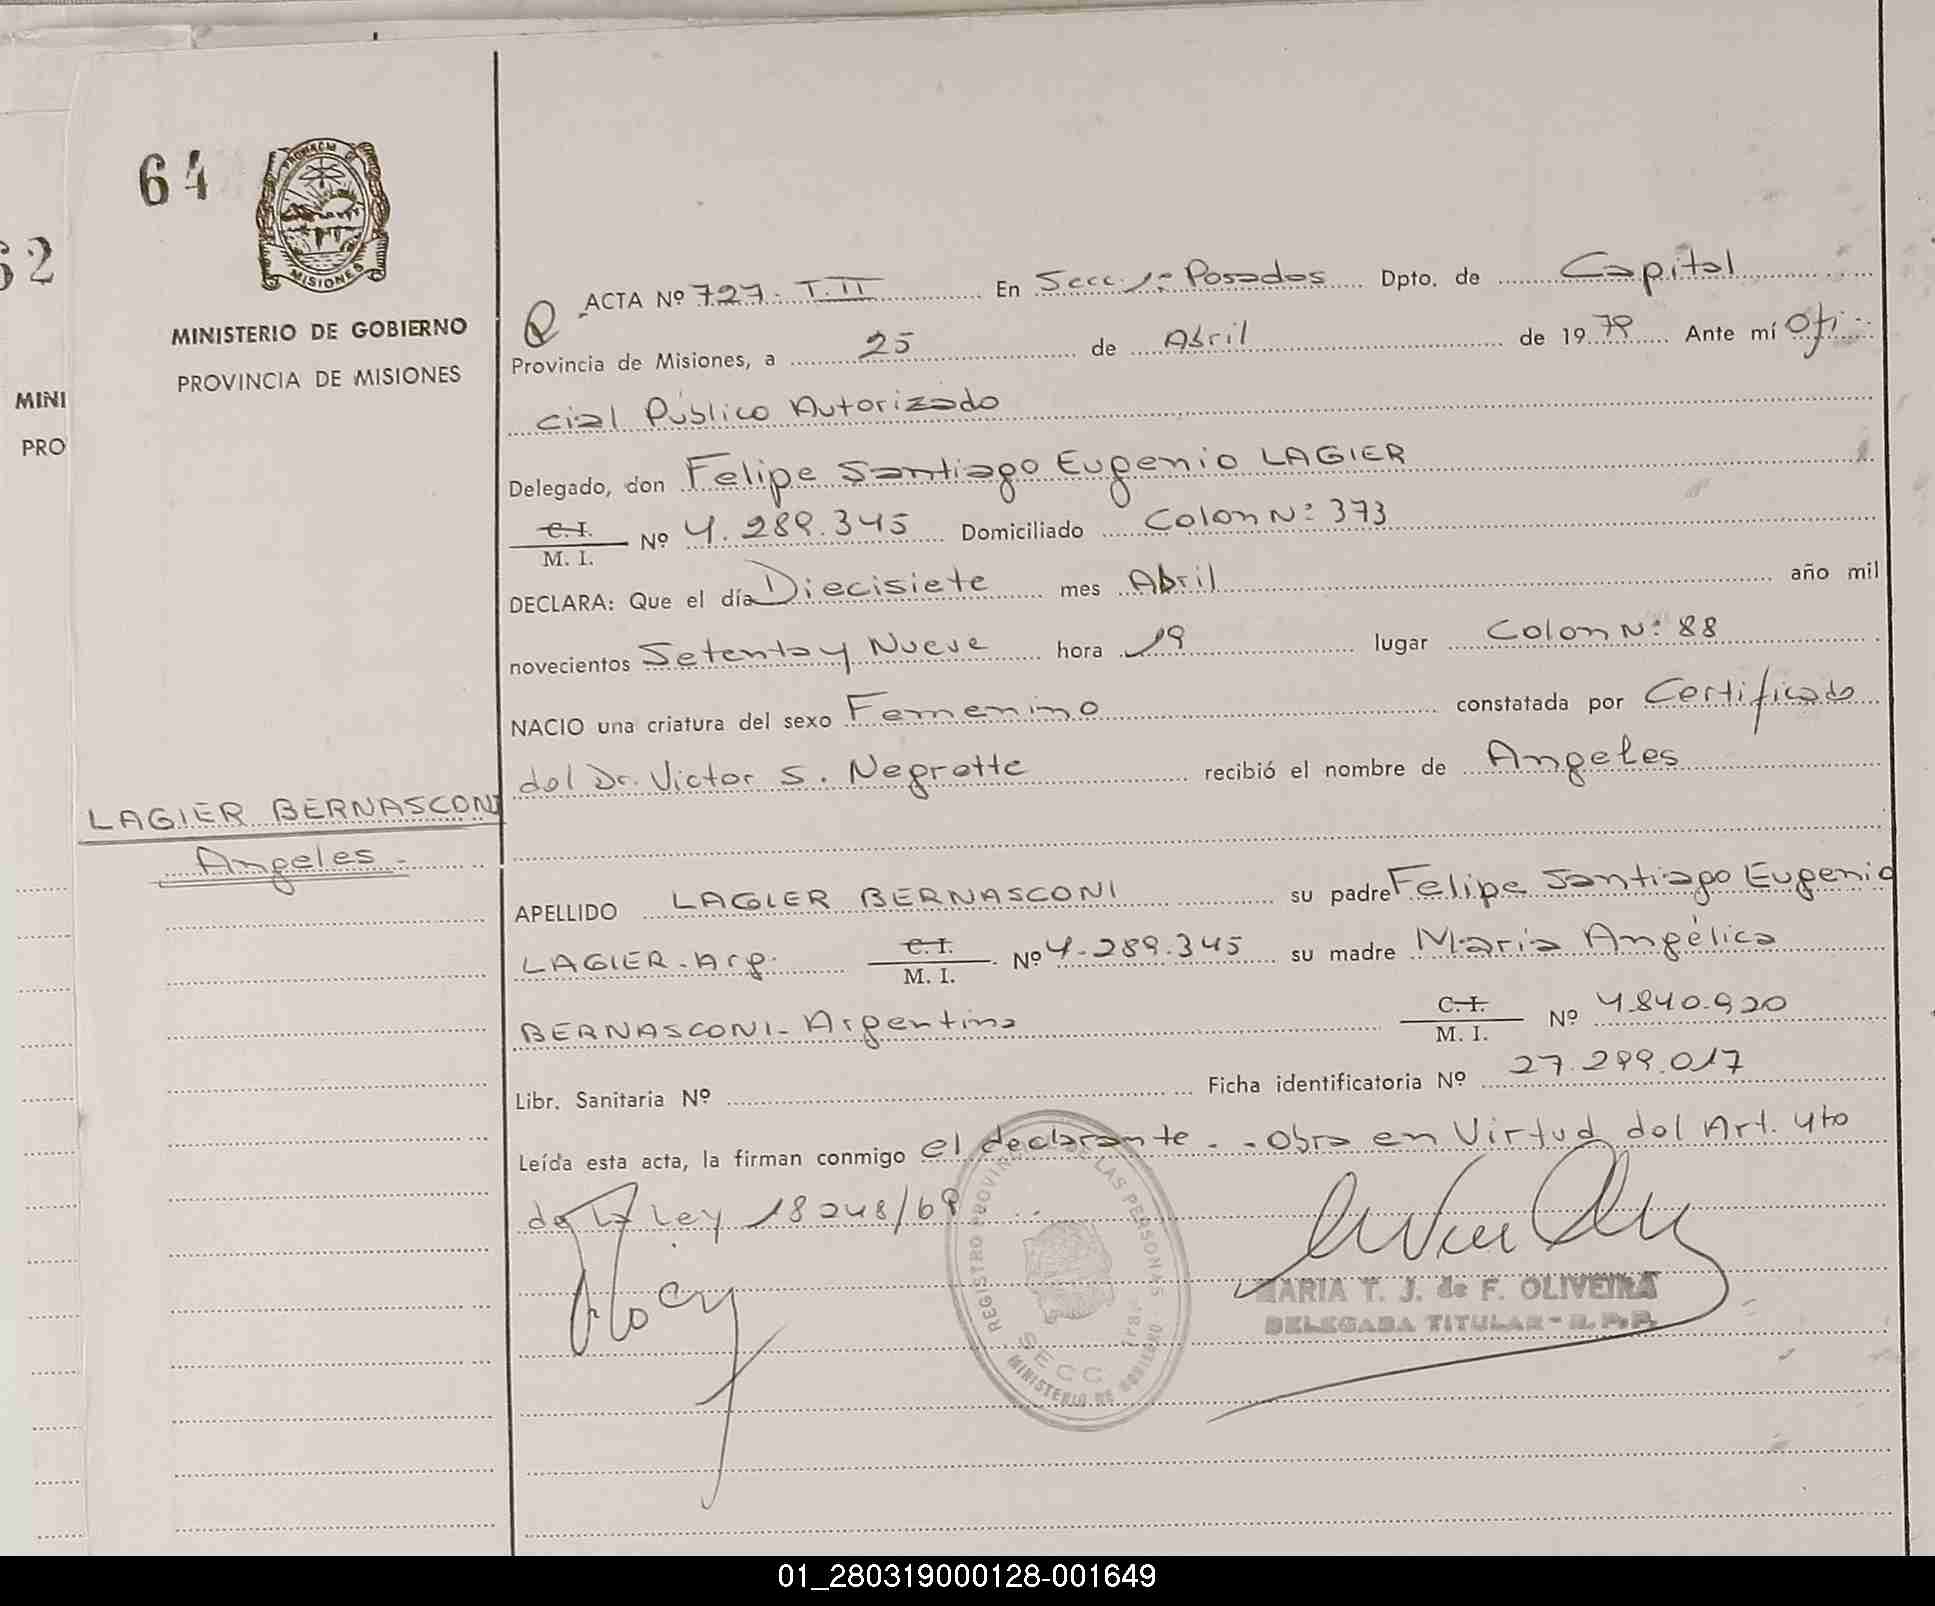 64
PROVINCIA DE
MISIONES
MINISTERIO DE GOBIERNO
PROVINCIA DE MISIONES
62
MINI
PRO
ACTA Nº 727. T.II En Secc. 1: Posadas Dpto. de Capital
Provincia de Misiones, a 25 de Abril de 1979 Ante mí Ofi-
cial Público Autorizado
Delegado, don Felipe Santiago Eugenio LAGIER
C. I.
M. I. Nº 4.289.345 Domiciliado Colon N: 373
DECLARA: Que el día Diecisiete mes Abril año mil
novecientos Setenta y Nueve hora 19 lugar Colon N: 88
NACIO una criatura del sexo Femenino constatada por Certificado
del Dr. Victor S. Negrette recibió el nombre de Angeles
LAGIER BERNASCONI
Angeles-
APELLIDO LAGIER BERNASCONI su padre Felipe Santiago Eugenio
LAGIER-Arg. C. I.
M. I. Nº 4.289.345 su madre Maria Angélica
BERNASCONI-Argentina C. I.
M. I. Nº 4.840.920
Libr. Sanitaria Nº Ficha identificatoria Nº 27.299.017
Leída esta acta, la firman conmigo el declarante.-.Obra en Virtud del Art. 4to
de la Ley 18248/69
REGISTRO PROVINCIAL DE LAS PERSONAS
SECC 1ra.
MINISTERIO DE GOBIERNO
MARIA T. J. de F. OLIVEIRA
DELEGADA TITULAR - R. P. P.
01_280319000128-001649